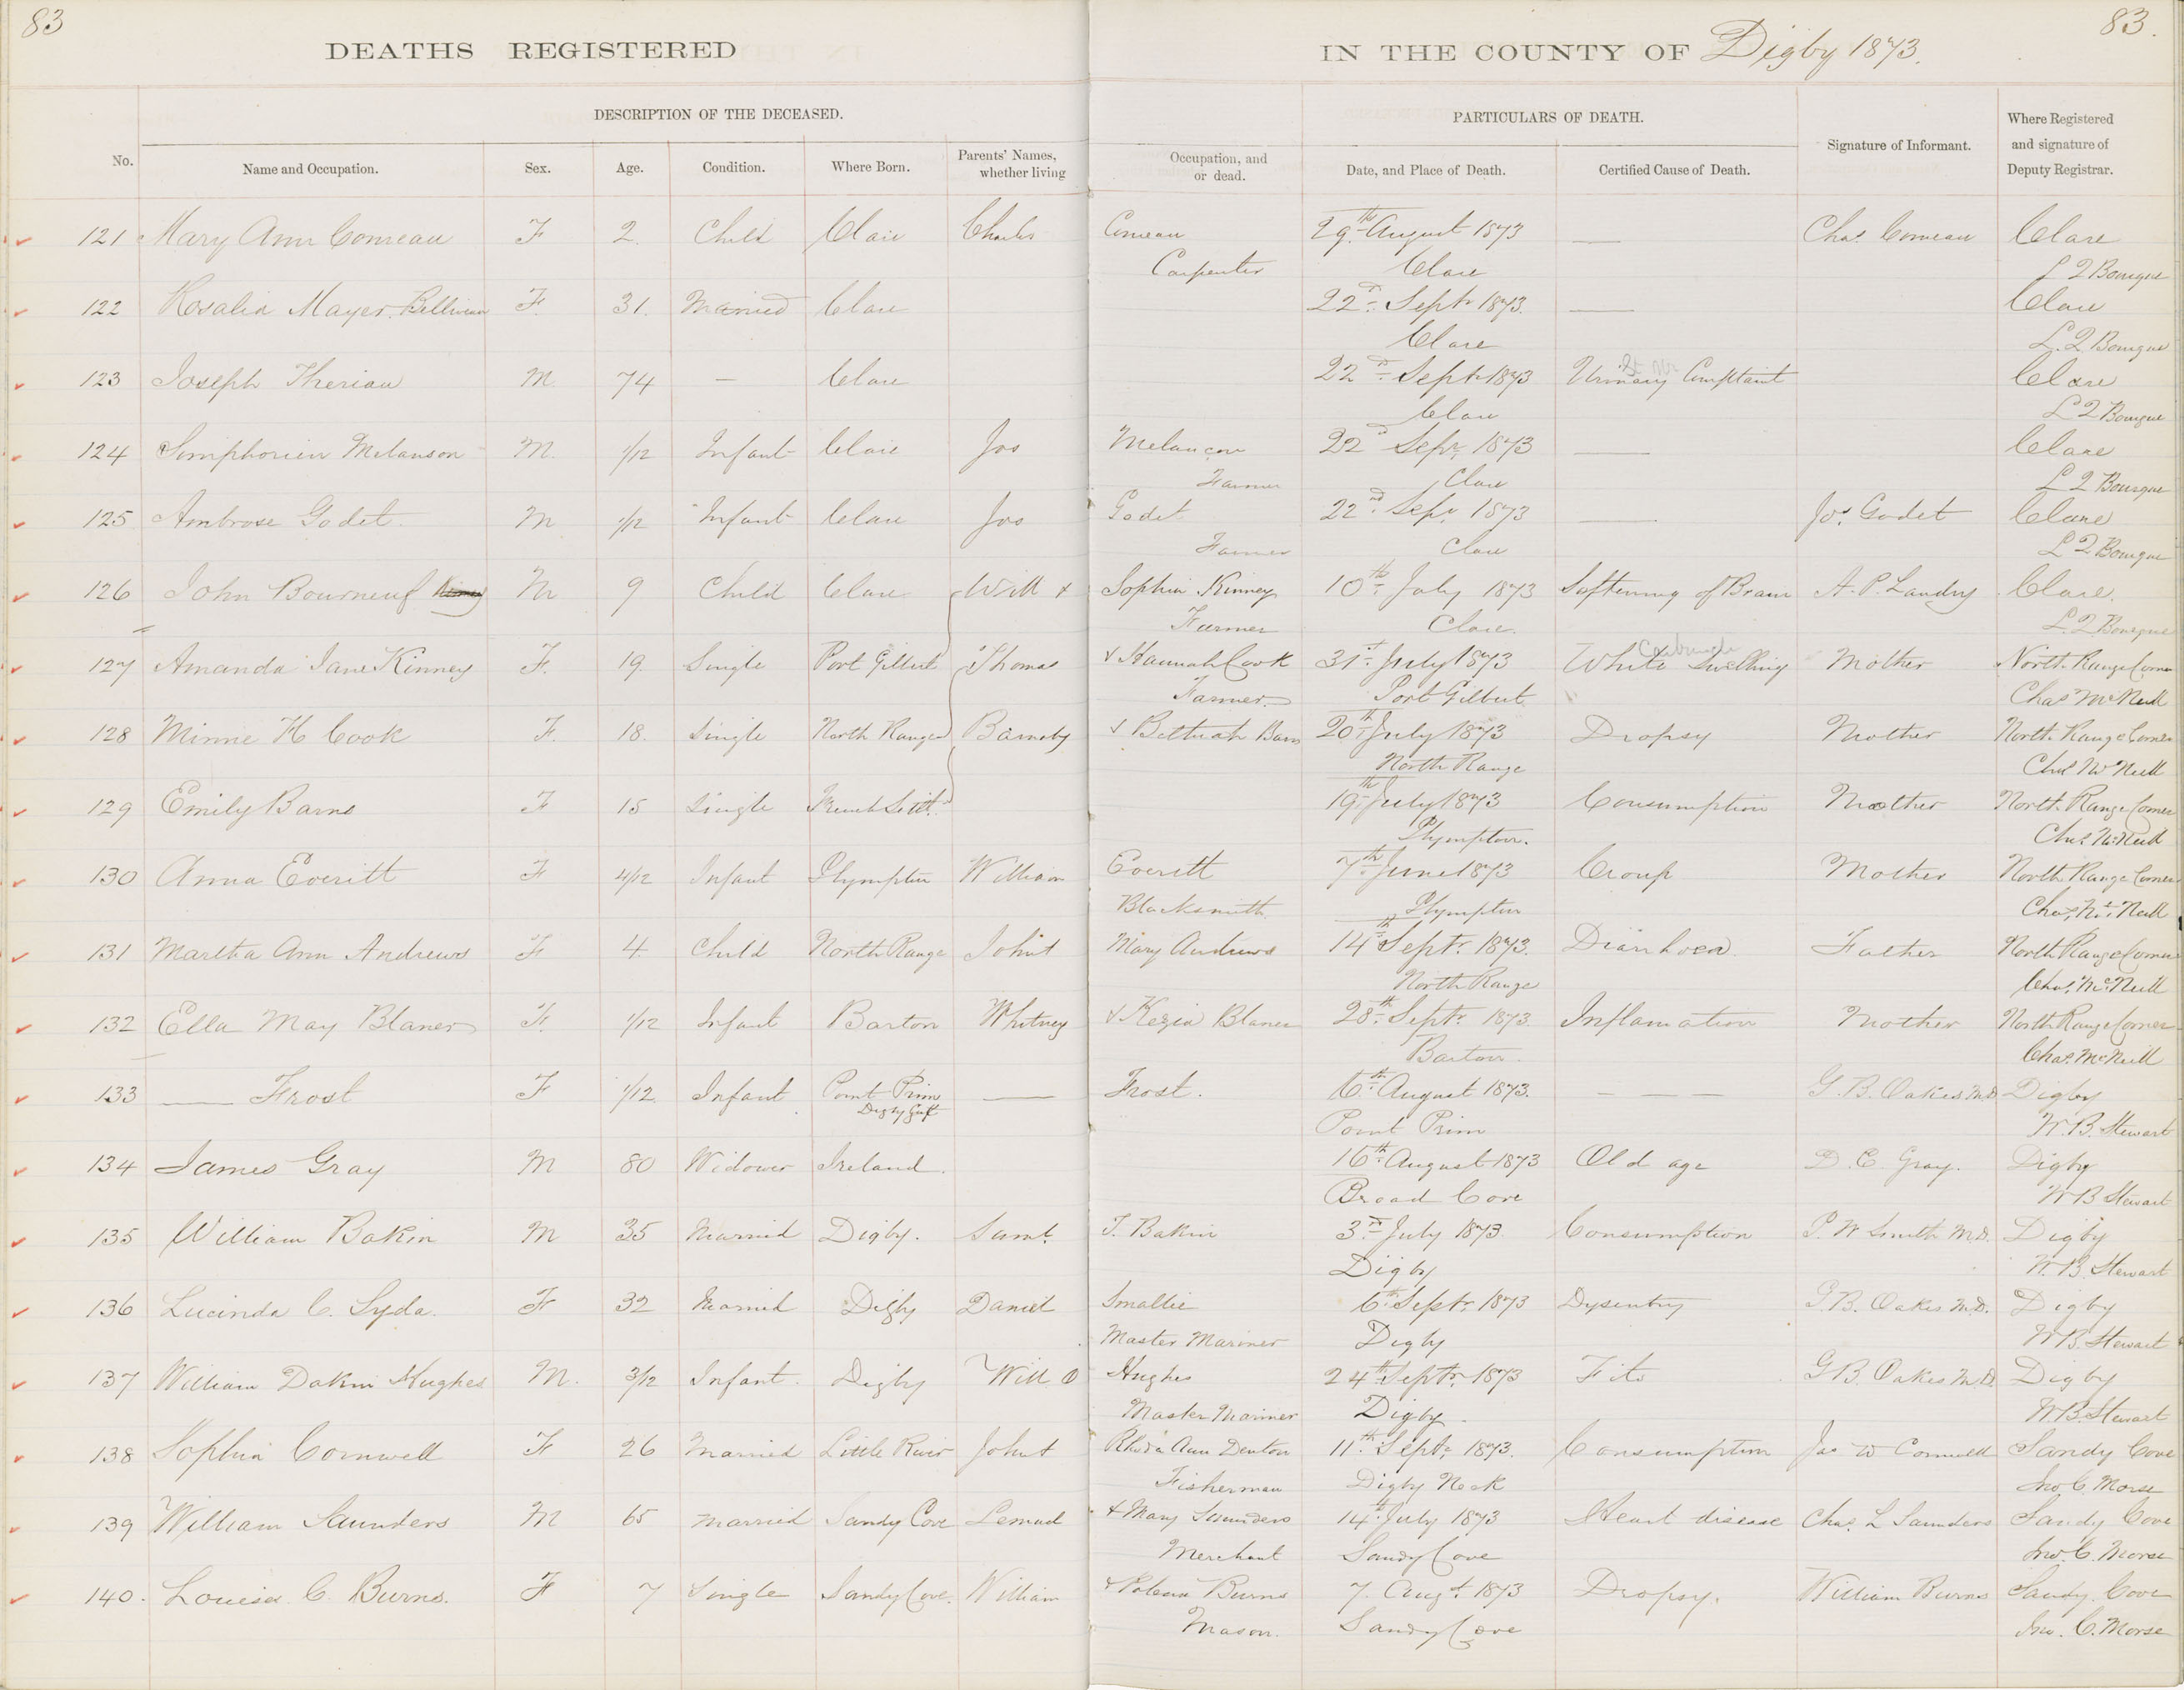 83
83.
DEATHS REGISTERED IN THE COUNTY OF Digby 1873.
DESCRIPTION OF THE DECEASED. PARTICULARS OF DEATH.
No. Name and Occupation. Sex. Age. Condition. Where Born. Parents' Names, whether living Occupation, and or dead. Date, and Place of Death. Certified Cause of Death. Signature of Informant. Where Registered and signature of Deputy Registrar.
121 Mary Ann Comeau F 2. Child Clare Charles Comeau 29th August 1873 — Chas. Comeau Clare
Carpenter Clare L Q Bourque
122 Rosalia Mayer F. 31. Married Clare 22d Sept 1873. — Clare
Clare L. Q. Bourque
123 Joseph Theriau M 74 — Clare 22d Sept 1873 Urinary Complaint Clare
Clare L Q Bourque
124 Simphorien Melanson M. 1/12 Infant Clare Jos Melancon 22d Sepr 1873 — Clare
Farmer Clare L Q Bourque
125 Ambrose Godet M 1/12 Infant Clare Jos Godet 22nd Sepr 1873 — Jos. Godet Clare
Farmer Clare L Q Bourque
126 John Bourneuf M 9 Child Clare Will + Sophia Kinney 10th July 1873 Softening of Brain A. P. Landry Clare.
Farmer Clare. L. Q Bourque
127 Amanda Jane Kinney F. 19. Single Port Gilbert Thomas + Hannah Cook 31st July 1873 White Swelling Mother North Range Corner
Farmer. Port Gilbert Chas McNeill
128 Minnie H Cook F. 18. Single North Range Barnaby + Barns 20th July 1873 Dropsy Mother North Range Corner
North Range Chas McNeill
129 Emily Barns F 15 Single French Settlt. 19th July 1873 Consumption Mother North Range Corner
Plympton. Chas McNeill
130 Anna Everitt F 4/12 Infant Plympton William Everitt 7th June 1873 Croup Mother North Range Corner
Blacksmith Plympton Chas. McNeill
131 Martha Ann Andrews F 4 Child North Range John + Mary Andrews 14th Sept. 1873. Diarrhoea. Father North Range Corner
North Range Chas. McNeill
132 Ella May Blaner F. 1/12 Infant Barton Whitney + Kezia Blaner 28th Sept. 1873. Inflamation Mother North Range Corner
Barton. Chas. McNeill
133 — Frost F 1/12 Infant Point Prim — Frost. 16th August 1873. — — — G. B. Oakes M.D. Digby
Digby Gut Point Prim W. B. Stewart
134 James Gray M 80 Widower Ireland. 16th August 1873 Old age D. C. Gray. Digby
Broad Cove W B Stewart
135 William Bakin M 35 Married Digby. Saml. T. Bakin 3rd July 1873. Consumption P. W Smith M.D. Digby
Digby W. B. Stewart
136 Lucinda C. Syda. F 32 Married Digby Daniel Smallie 6th Sept. 1873 Dysentry G. B. Oakes M.D. Digby
Master Mariner Digby W B. Stewart
137 William Dakin Hughes M. 3/12 Infant. Digby Will O Hughes 24th Septr. 1873 Fits G B. Oakes M.D. Digby
Master Mariner Digby. W B. Stewart
138 Sophia Cornwell F 26 Married Little River John + Rhoda Ann Denton 11th Sept. 1873. Consumption Jas W Cornwell Sandy Cove
Fisherman Digby Neck Jno C. Morse
139 William Saunders M 65 Married Sandy Cove Lemuel + Mary Saunders 14th July 1873 Heart disease Chas. L Saunders Sandy Cove
Merchant Sandy Cove Jno. C. Morse
140. Louisa C. Burns. F 7 Single Sandy Cove. William Burns 7. Augt. 1873 Dropsy. William Burns Sandy Cove
Mason. Sandy Cove Jno. C. Morse